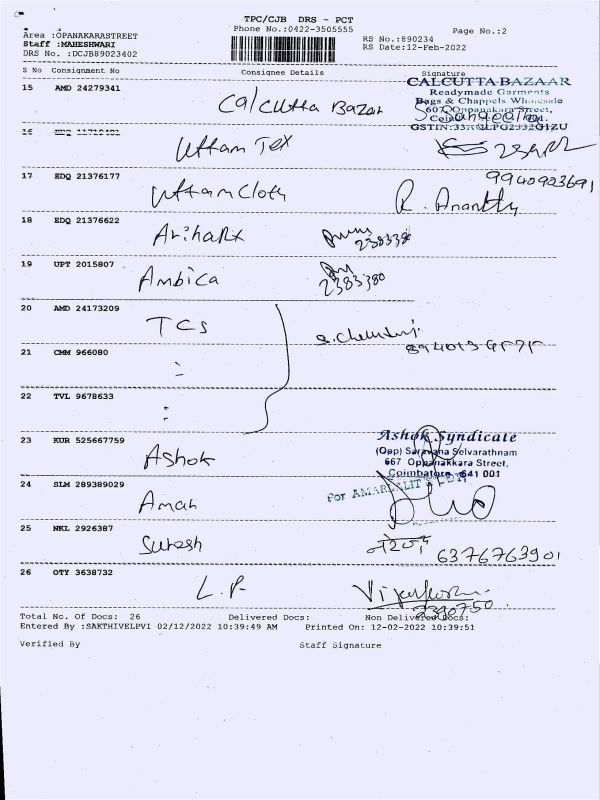 TPC/CJB DRS - PCT
Phone No.:0422-3505555
Page No.:2
Area :OPANAKARASTREET
Staff :MAHESHWARI
DRS No. :DCJB89023402
RS No.:890234
RS Date:12-Feb-2022
S No Consignment No Consignee Details Signature
15 AMD 24279341 Calcutta Bazar
CALCUTTA BAZAAR
Readymade Garments
Bags & Chappels Wholesale
607 Oppanakara Street,
16 Uttam Tex
17 EDQ 21376177 Uttam Cloth 9940923691
R. Ananthy
18 EDQ 21376622 Arihant 238338
19 UPT 2015807 Ambica 2383380
20 AMD 24173209 TCS
21 CMM 966080
22 TVL 9678633
23 KUR 525667759 Ashok
Ashok Syndicate
(Opp) Saravana Selvarathnam
667 Oppanakkara Street,
Coimbatore - 641 001
24 SLM 289389029 Aman
For
25 NKL 2926387 Suresh 6376763901
26 OTY 3638732 L.P.
2390750
Total No. Of Docs: 26 Delivered Docs: Non Delivered Docs:
Entered By :SAKTHIVELPVI 02/12/2022 10:39:49 AM Printed On: 12-02-2022 10:39:51
Verified By Staff Signature